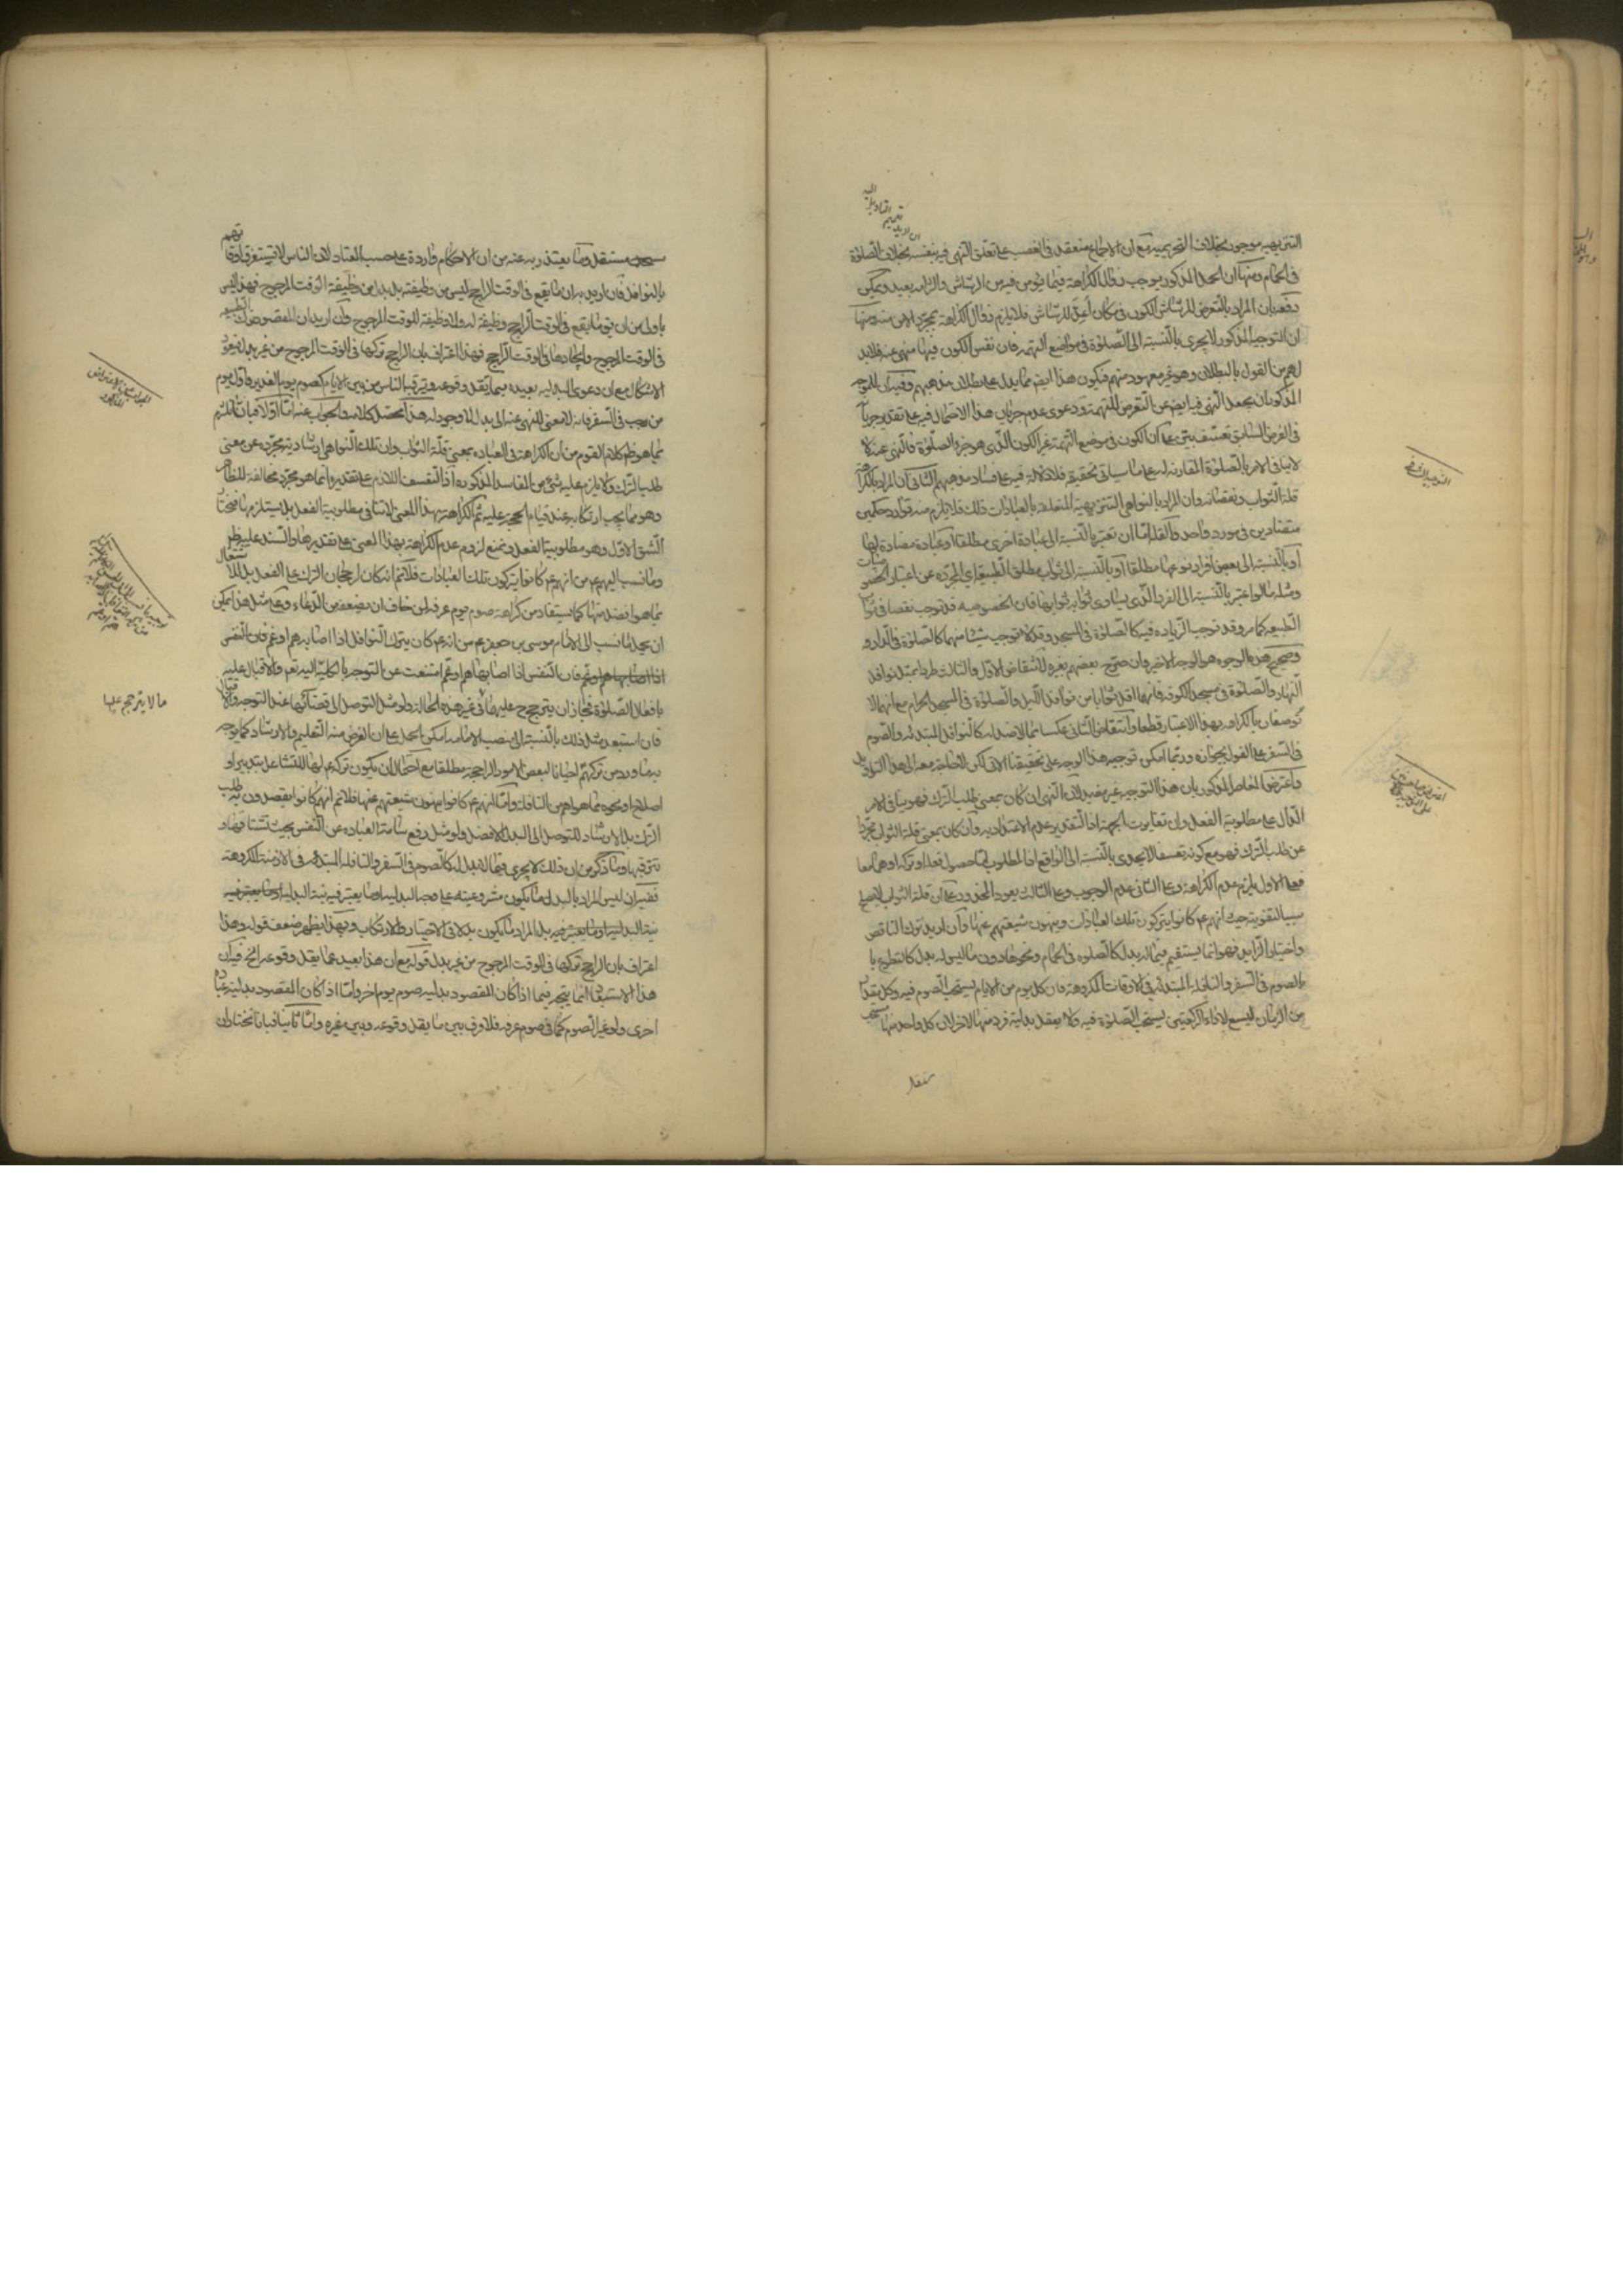 التنزيهية موجودة بخلاف التحريمية مع ان الاجماع منعقد في الغصب على تعلق النهي فيه بنفسه بخلاف الصلوة
في الحمام ومنها ان الحمل المذكور يوجب زوال الكراهة فيما يؤمن فيه من الرشاش والتزامه بعيد ويمكن
دفعه بان المراد بالتعرض للرشاش الكون في مكان للرشاش فلا يلزم زوال الكراهة بمجرد الامن منه ومنها
ان التوجيه المذكور لا يجري بالنسبة الى الصلوة في مواضع التهمة فان نفس الكون فيها منهي عنه فلا بد
لهم من القول بالبطلان وهو غير معهود منهم فيكون هذا ايضا مما يدل على بطلان مذهبهم وفيه ان للموجه
المذكور ان يجعل النهي فيه ايضا عن التعرض للتهمة ودعوى عدم جريان هذا الاحتمال فيه على تقدير جريانه
في الفرض السابق تعسف بيّن على ان الكون في موضع التهمة غير الكون الذي هو جزء الصلوة والنهي عنه لا
لا ينافي الامر بالصلوة المقارنة له على ما سياتي تحقيقه فلا دلالة فيه على فساد مذهبهم الثاني ان المراد بالكراهة
قلة الثواب ونقصانه وان المراد بالنواهي التنزيهية المتعلقة بالعبادات ذلك فلا يلزم منه توارد حكمين
متضادين في مورد واحد والقلة اما ان تعتبر بالنسبة الى عبادة اخرى مطلقا او عبادة مضادة لها
او بالنسبة الى بعض افراد نوعها مطلقا او بالنسبة الى ثواب مطلق الطبيعة اي المجردة عن اعتبار الخصوصيات
ومثله ما لو اعتبر بالنسبة الى الفرد الذي يساوي ثوابه ثوابها فان الخصوصية قد توجب نقصا في ثواب
الطبيعة كما مر وقد توجب الزيادة فيه كالصلوة في المسجد وقد لا توجب شيئا منهما كالصلوة في الدار و
وصحيح هذه الوجوه هو الوجه الاخير وان صرح بعضهم بغيره لانتقاض الاول والثالث طردا بمثل نوافل
النهار والصلوة في مسجد الكوفة فانها اقل ثوابا من نوافل الليل والصلوة في المسجد الحرام مع انهما لا
توصفان بالكراهة بهذا الاعتبار قطعا وانتقاض الثاني عكسا بما لا ضد له كالنوافل المبتدئة والصوم
في السفر على القول بجوازه وربما امكن توجيه هذا الوجه على تحقيقنا الاتي لكن لا حاجة معه الى هذا التاويل
واعترض الفاضل المذكور بان هذا التوجيه غير مفيد لان النهي ان كان بمعنى طلب الترك فهو ينافي الامر
الدال على مطلوبية الفعل وان تغايرت الجهة اذ التقدير عدم الاعتداد به وان كان بمعنى قلة الثواب مجردا
عن طلب الترك فهو مع كونه تعسفا لا يجدي بالنسبة الى الواقع اذ المطلوب اما حصول فعله او تركه او هما معا
فعلى الاول يلزم عدم الكراهة وعلى الثاني عدم الوجوب وعلى الثالث يعود المحذور على ان قلة الثواب لا يصلح
سببا لتفويته حيث انهم ع كانوا يتركون تلك العبادات وينهون شيعتهم عنها وان اريد ترك الناقص
واختيار الزايد فهو انما يستقيم فيما له بدل كالصلوة في الحمام ونحوها دون ما ليس له بدل كالتطوع با
بالصوم في السفر والنافلة المبتدئة في الاوقات المكروهة فان كل يوم من الايام يستحب الصوم فيه وكل مقدار
من الزمان ليسع لاداء الركعتين يستحب الصلوة فيه ولا يعقل بدلية فرد منها لاخر لان كل واحد منها مستحب
مستقل
التوجيه الثاني
اليه
مستحب مستقل وما يعتذر به عنه من ان الاحكام واردة على حسب المعتاد لان الناس لا يستغرق اوقاتهم
بالنوافل فان اريد به ان ما يقع في الوقت الراجح ليس من وظيفته بل بدل من وظيفة الوقت المرجوح فهذا ليس
باولى من ان يقع ما يقع في الوقت الراجح وظيفة له ولا وظيفة للوقت المرجوح وان اريد ان المقصود ترك الطبيعة
في الوقت المرجوح وايجادها في الوقت الراجح فهذا اعتراف بان الراجح تركها في الوقت المرجوح من غير بدل فيعود
الاشكال مع ان دعوى البدلية بعيدة سيما فيما يقل وقوعه ويترقبه الناس من بين الايام كصوم يوم الغدير واول يوم
من رجب في السفر فانه لا معنى للنهي عنه الى بدل لا وجود له هذا محصل كلامه والجواب عنه اما اولا فبان نلتزم
بما هو ظاهر كلام القوم من ان الكراهة في العبادة بمعنى قلة الثواب وان تلك النواهي ارشادية مجردة عن معنى
طلب الترك ولا يلزم عليه شيء من المفاسد المذكورة اذ التعسف اللازم على تقديره انما هو مجرد مخالفة للظاهر
وهو مما يجب ارتكابه عند قيام الحجة عليه ثم الكراهة بهذا المعنى لا تنافي مطلوبية الفعل بل يستلزمها فنختار
الشق الاول وهو مطلوبية الفعل ونمنع لزوم عدم الكراهة بهذا المعنى على تقديرها والسند عليه ظاهر
وما نسب اليهم ع من انهم ع كانوا يتركون تلك العبادات فلا نم انه كان لرجحان الترك على الفعل بل للاشتغال
بما هو افضل منها كما يستفاد من كراهة صوم يوم عرفة لمن خاف ان يضعف من الدعاء وعلى مثل هذا يمكن
ان يحمل ما نسب الى الامام موسى بن جعفر ع من انه ع كان يترك النوافل اذا اصابه هم او غم فان النفس
اذا اصابها هم او غم فان النفس اذا اصابها هم او غم امتنعت عن التوجه بالكلية اليه تعم والاقبال عليه
بافعال الصلوة فجاز ان يترجح عليها في غير هذه الحالة ولو مثل التوصل الى قضائها عند التوجه والاقبال
فان استبعد مثل ذلك بالنسبة الى منصب الامامة امكن الحمل على ان الغرض منه التعليم والارشاد كما يوجه
به ما ورد من تركهم احيانا لبعض الامور الراجحة مطلقا مع احتمال ان يكون تركه ع لها للتشاغل بتدبير او
اصلاح او نحوه مما هو اهم من النافلة واما انهم ع كانوا ينهون شيعتهم عنها فلا نم انهم كانوا يقصدون به طلب
الترك بل الارشاد للتوصل الى البدل الافضل ولو مثل رفع سامة العبادة عن النفس بحيث تشتاقها و
تترقبها وما ذكر من ان ذلك لا يجري فيما لا بدل له كالصوم في السفر والنافلة المبتدئة في الازمنة المكروهة
ففيه ان ليس المراد بالبدل ما يكون مشروعيته على وجه البدلية او ما يعتبر فيه نية البدلية او ما يعتبر فيه
نية البدلية او ما يعتبر فيه بل المراد ما يكون بدلا في الاختيار والارتكاب وبهذا يظهر ضعف قوله وهذا
اعتراف بان الراجح تركها في الوقت المرجوح من غير بدل قوله مع ان هذا بعيد فيما يقل وقوعه الخ فيه ان
هذا الاستبعاد انما يتجه فيما اذا كان المقصود بدلية صوم يوم اخر واما اذا كان المقصود بدلية عبادة
اخرى ولو غير الصوم كما في صوم عرفة فلا فرق بين ما يقل وقوعه وبين غيره واما ثانيا فبانا نختار ان
ما لا يترجح عليها